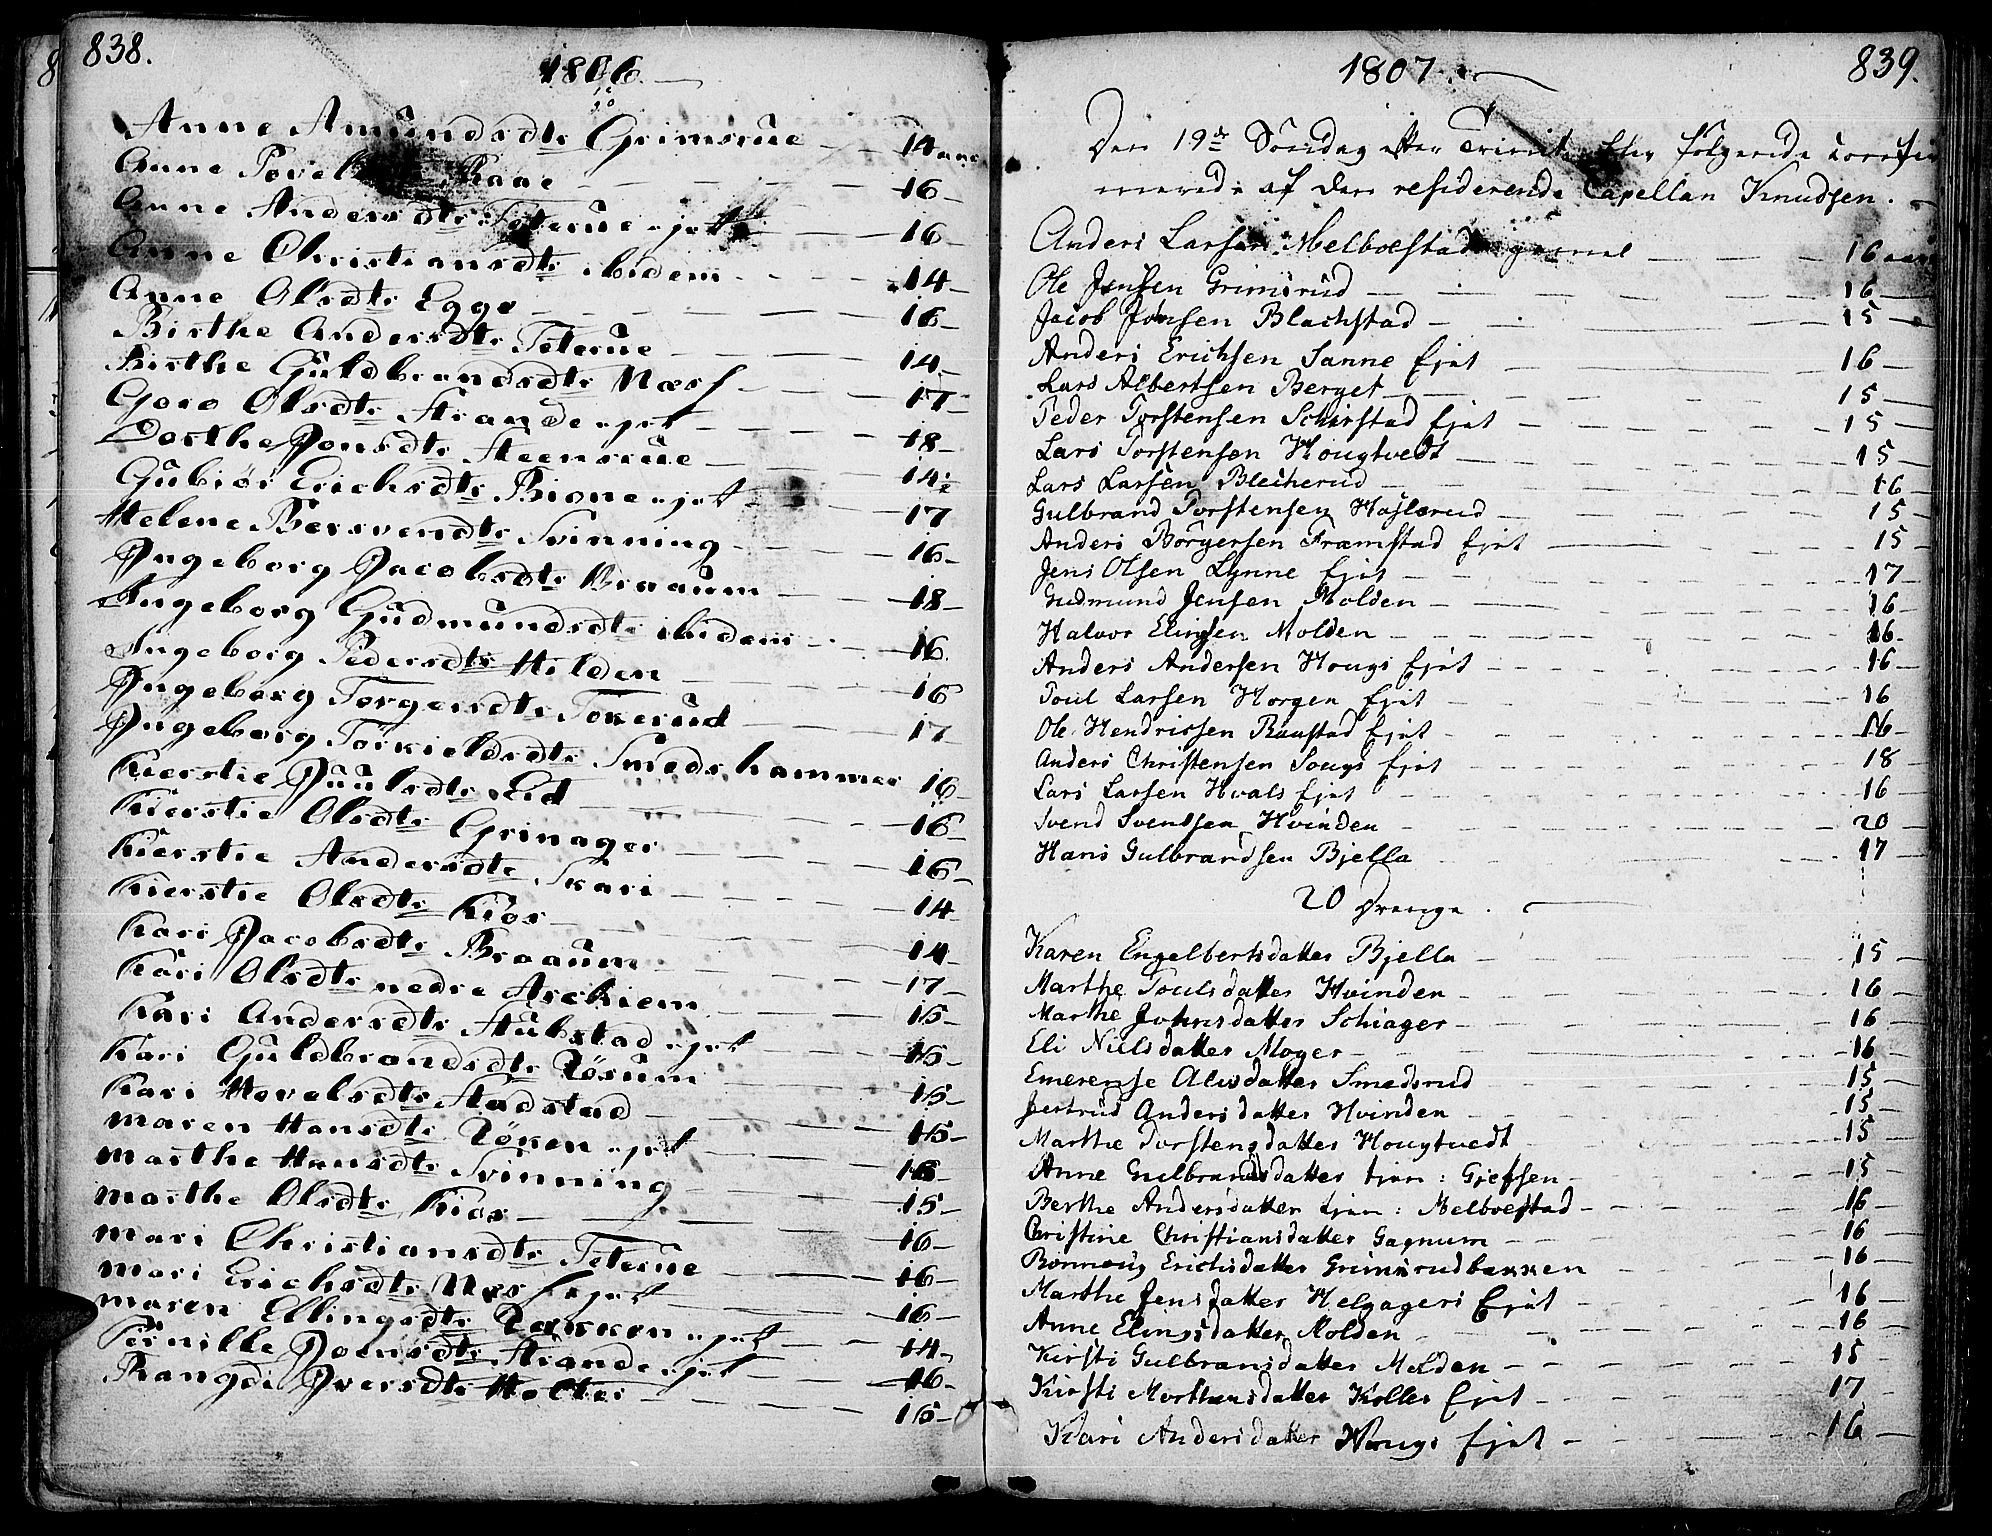 838.
1806.
Anne Amundsdtr Grimsrue 14 aar
Anne Povels Raae 16
Anne Andersdtr Teterue ejet 16
Anne Christiansdtr ibidem 14
Anne Olsdtr Egge 16
Birthe Andersdtr Teterue 14
Birthe Guldbrandsdtr Næss 17
Goro Olsdtr Strande ejet 18
Dorthe Jonsdtr Steensrue 14½
Gubiør Erichsdtr Bione ejet 17
Helene Bersvendtr Svinning 16
Ingeborg Jacobsdtr Braaum 18
Ingeborg Gudmundsdtr ibidem 16
Ingeborg Pedersdtr Hilden 16
Ingeborg Torgersdtr Tokerud 17
Ingeborg Torkieldsdtr Smedshammer 16
Kierstie Juulsdtr Eid 16
Kierstie Olsdtr Grinager 16
Kierstie Andersdtr Skari 14
Kierstie Olsdtr Kios 14
Kari Jacobsdtr Braaum 17
Kari Olsdtr nedre Aschiem 15
Kari Andersdtr Stubstad ejet 15
Kari Guldbrandsdtr Røsum 15
Kari Hovelsdtr Stadstad 15
Maren Hansdtr Røken ejet 16
Marthe Hansdtr Svinning 15
Marthe Olsdtr Kios 16
Mari Christiansdtr Teterue 16
Mari Erichsdtr Næss ejet 16
Maren Ellingsdtr Rækken ejet 14
Pernille Joensdtr Strande ejet 16
Rangdi Iversdtr Holter 15
1807.
839.
Den 19de Søndag efter Trinit. blev følgende confir
merede af den residerende Capellan Knudsen.
Anders Larsen Melboestad gammel 16 aar
Ole Jensen Grimsrud 16
Jacob Jonsen Blachstad 15
Anders Erichsen Sanne Ejet 16
Lars Albertsen Berget 15
Peder Torstensen Schirstad Ejet 15
Lars Torstensen Hougtvedt 15
Lars Larsen Bleikerud 16
Gulbrand Torstensen Haslerud 15
Anders Børgersen Framstad Ejet 15
Jens Olsen Lynne Ejet 17
Gudmund Jensen Molden 16
Halvor Elingsen Molden 16
Anders Andersen Hougs Ejet 16
Poul Larsen Horgen Ejet 16
Ole Hendricsen Raastad Ejet 16
Anders Christensen Sougs Ejet 18
Lars Larsen Hvals Ejet 16
Svend Svendsen Hvinden 20
Hans Gulbrandsen Bjella 17
20 Drenge.
Karen Engelbertsdatter Bjella 15
Marthe Poulsdatter Hvinden 16
Marthe Johnsdatter Schiager 16
Eli Nielsdatter Moger 16
Emerense Alvsdatter Smedsrud 15
Jertrud Andersdatter Hvinden 15
Marthe Torstensdatter Hougtvedt 15
Anne Gulbrandsdatter tjen: Gjefsen 15
Berthe Andersdatter tjen: Melboestad 16
Christine Christiansdatter Gagnum 16
Ronnoug Erichsdatter Grimsrudbakken 16
Marthe Jensdatter Helgagers Ejet 16
Anne Elingsdatter Molden 16
Kirsti Gulbransdatter Molden 15
Kirsti Morthensdatter Koller Ejet 17
Kari Andersdatter Hougs Ejet 16